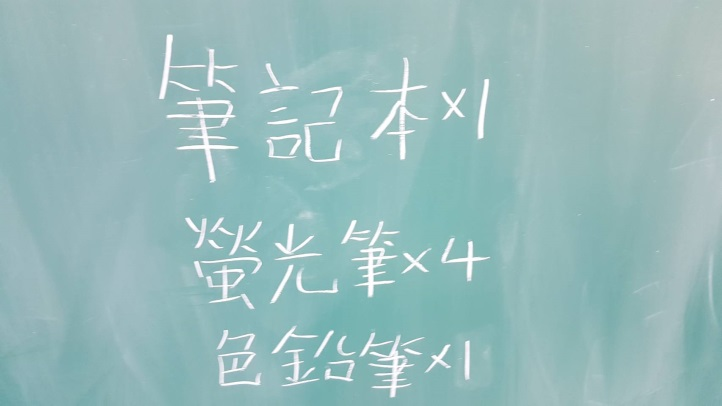 筆記本×1
螢光筆×4
色鉛筆×1